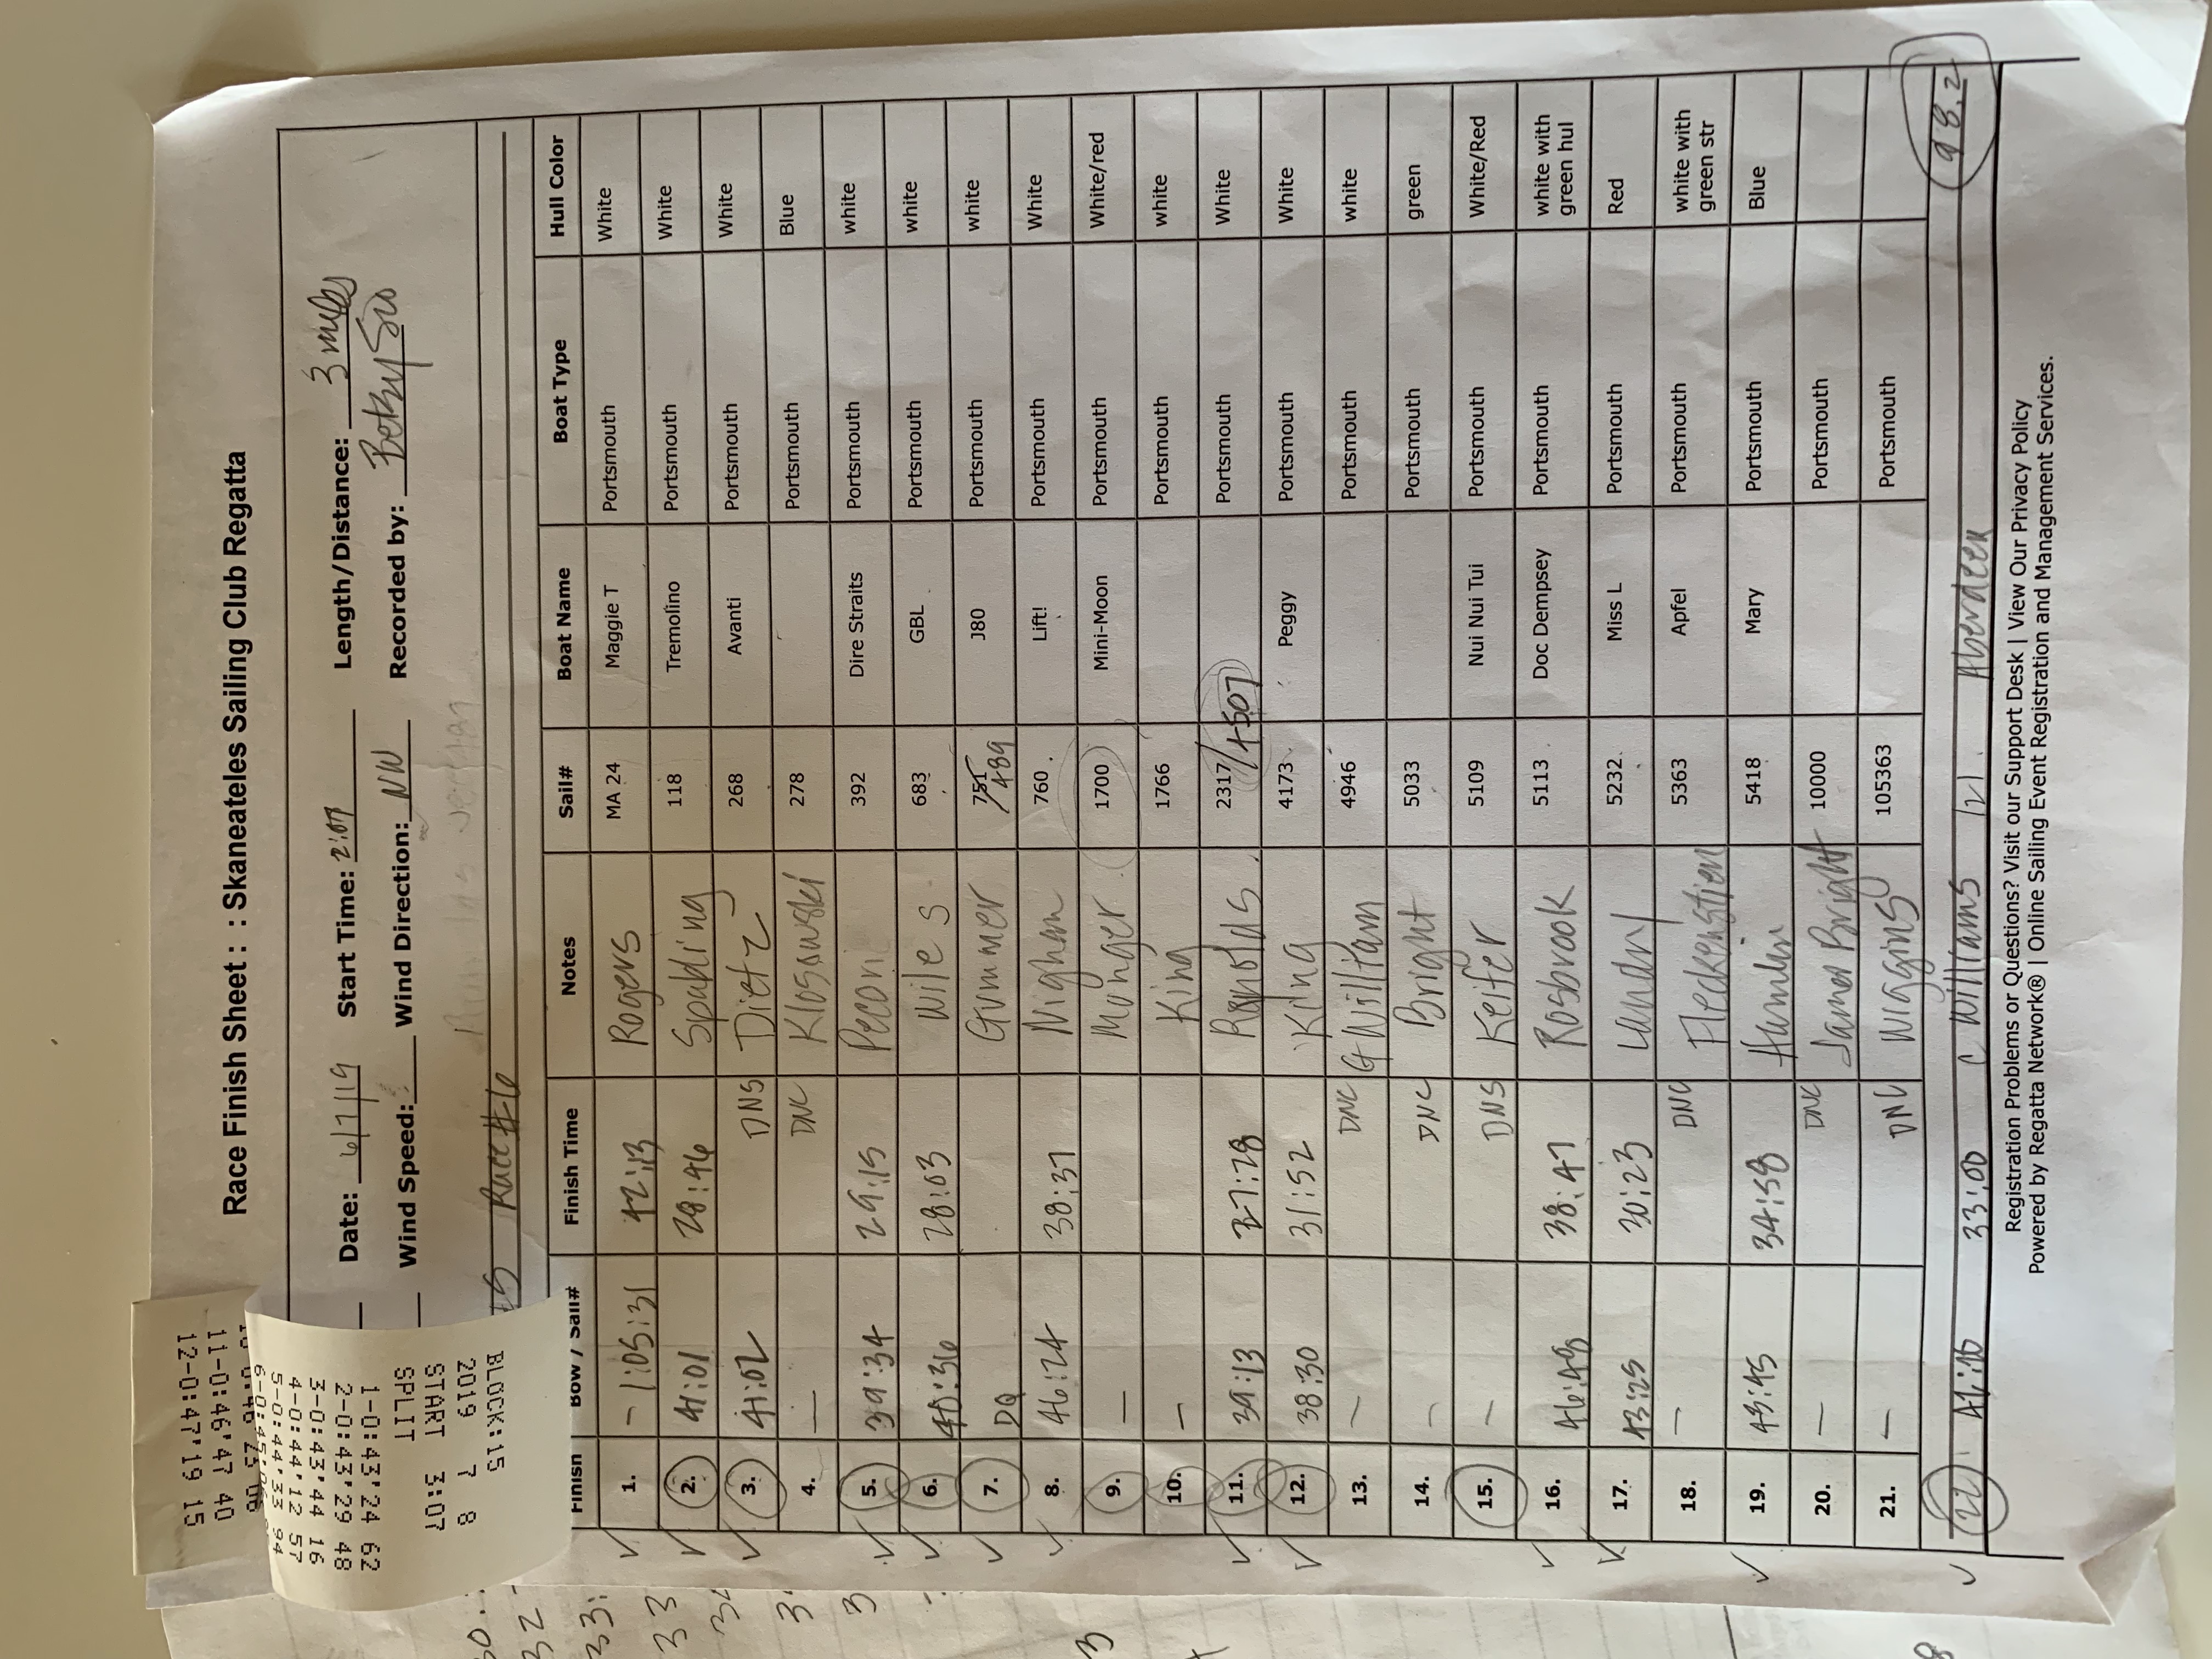 Race Finish Sheet : : Skaneateles Sailing Club Regatta
Date: 6/7/19 Start Time: 2:07 Length/Distance: 3 miles
Wind Speed: Wind Direction: NW Recorded by: Betsy
5 Race #6
Finish Bow / Sail# Finish Time Notes Sail# Boat Name Boat Type Hull Color
1. – 1:05:31 42:13 Rogers MA 24 Maggie T Portsmouth White
2. 41:01 28:46 Spalding 118 Tremolino Portsmouth White
3. 41:02 DNS Dietz 268 Avanti Portsmouth White
4. — DNC Klosowski 278 Portsmouth Blue
5. 39:34 29:15 Pecoric 392 Dire Straits Portsmouth white
6. 40:36 28:03 Wiles 683 GBL Portsmouth white
7. DQ Gummer 751/489 J80 Portsmouth white
8. 46:24 38:37 Migham 760 Lift! Portsmouth White
9. — Monger 1700 Mini-Moon Portsmouth White/red
10. – King 1766 Portsmouth white
11. 39:13 27:28 Reynolds 2317/1507 Portsmouth White
12. 38:30 31:52 King 4173 Peggy Portsmouth White
13. – DNC G William 4946 Portsmouth white
14. – DNC Bright 5033 Portsmouth green
15. – DNS Keifer 5109 Nui Nui Tui Portsmouth White/Red
16. 46:48 38:47 Rosbrook 5113 Doc Dempsey Portsmouth white with green hul
17. 43:25 30:23 Landry 5232 Miss L Portsmouth Red
18. – DNC Fleckenstien 5363 Apfel Portsmouth white with green str
19. 43:45 34:58 Hamlin 5418 Mary Portsmouth Blue
20. — DNC Jamod Bright 10000 Portsmouth
21. — DNC Wiggins 105363 Portsmouth
22 33:00 C Williams 121 Aberdeen 98.2
Registration Problems or Questions? Visit our Support Desk | View Our Privacy Policy
Powered by Regatta Network® | Online Sailing Event Registration and Management Services.
BLOCK:15
2019 7 8
START 3:07
SPLIT
1-0:43'24 62
2-0:43'29 48
3-0:43'44 16
4-0:44'12 57
5-0:44'33 94
11-0:46'47 40
12-0:47'19 15